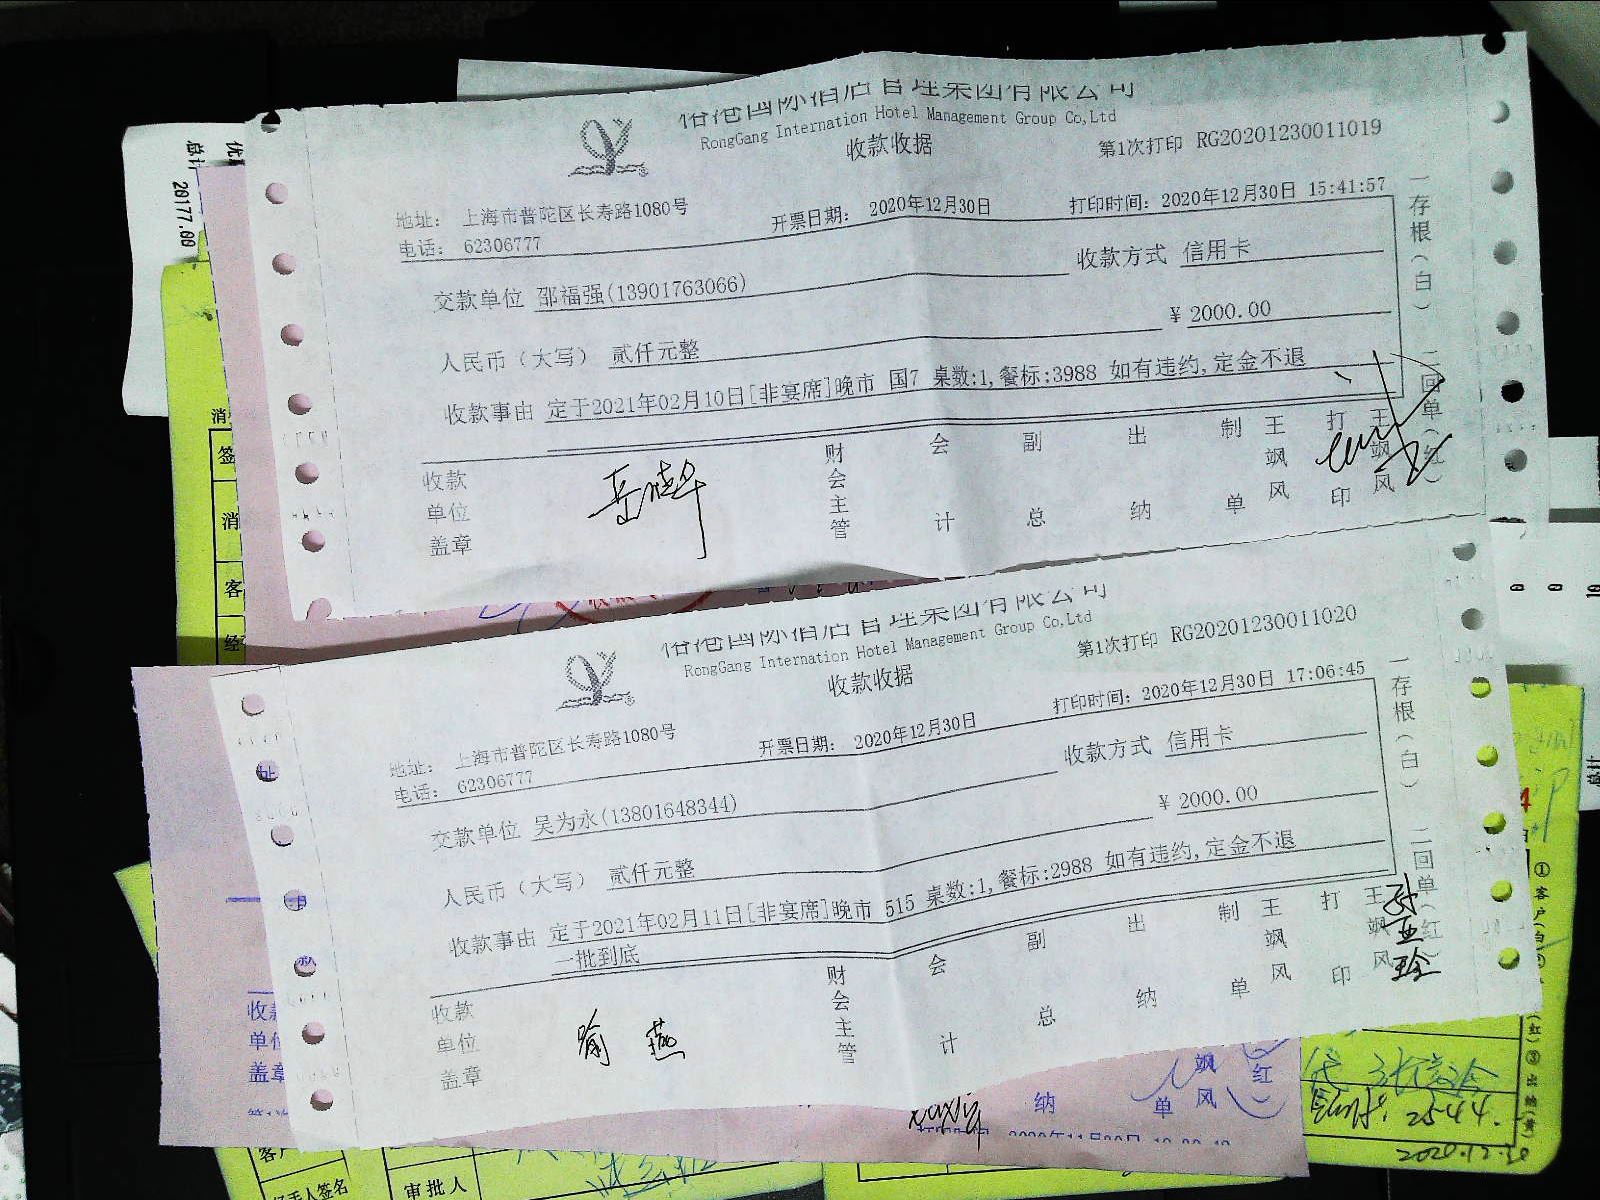 国际酒店管理集团有限公司
RongGang Internation Hotel Management Group Co,Ltd
收款收据
第1次打印 RG20201230011019
地址： 上海市普陀区长寿路1080号
电话： 62306777
开票日期： 2020年12月30日
打印时间：2020年12月30日 15:41:57
交款单位 邵福强(13901763066)
收款方式 信用卡
人民币（大写） 贰仟元整
¥ 2000.00
收款事由 定于2021年02月10日[非宴席]晚市 国7 桌数:1,餐标:3988 如有违约,定金不退
收款单位盖章
财会主管
会计
副总
出纳
制单
王飒风
打印
王飒风
一存根(白)
二回单(红)
国际酒店管理集团有限公司
RongGang Internation Hotel Management Group Co,Ltd
收款收据
第1次打印 RG20201230011020
地址： 上海市普陀区长寿路1080号
电话： 62306777
开票日期： 2020年12月30日
打印时间：2020年12月30日 17:06:45
交款单位 吴为永(13801648344)
收款方式 信用卡
人民币（大写） 贰仟元整
¥ 2000.00
收款事由 定于2021年02月11日[非宴席]晚市 515 桌数:1,餐标:2988 如有违约,定金不退
一批到底
收款单位盖章
喻燕
财会主管
会计
副总
出纳
制单
王飒风
打印
王飒风
一存根(白)
二回单(红)
20177.00
收
单位
盖章
纳
单
飒风
(红)
2544.
2020.12.30
审批人
签名